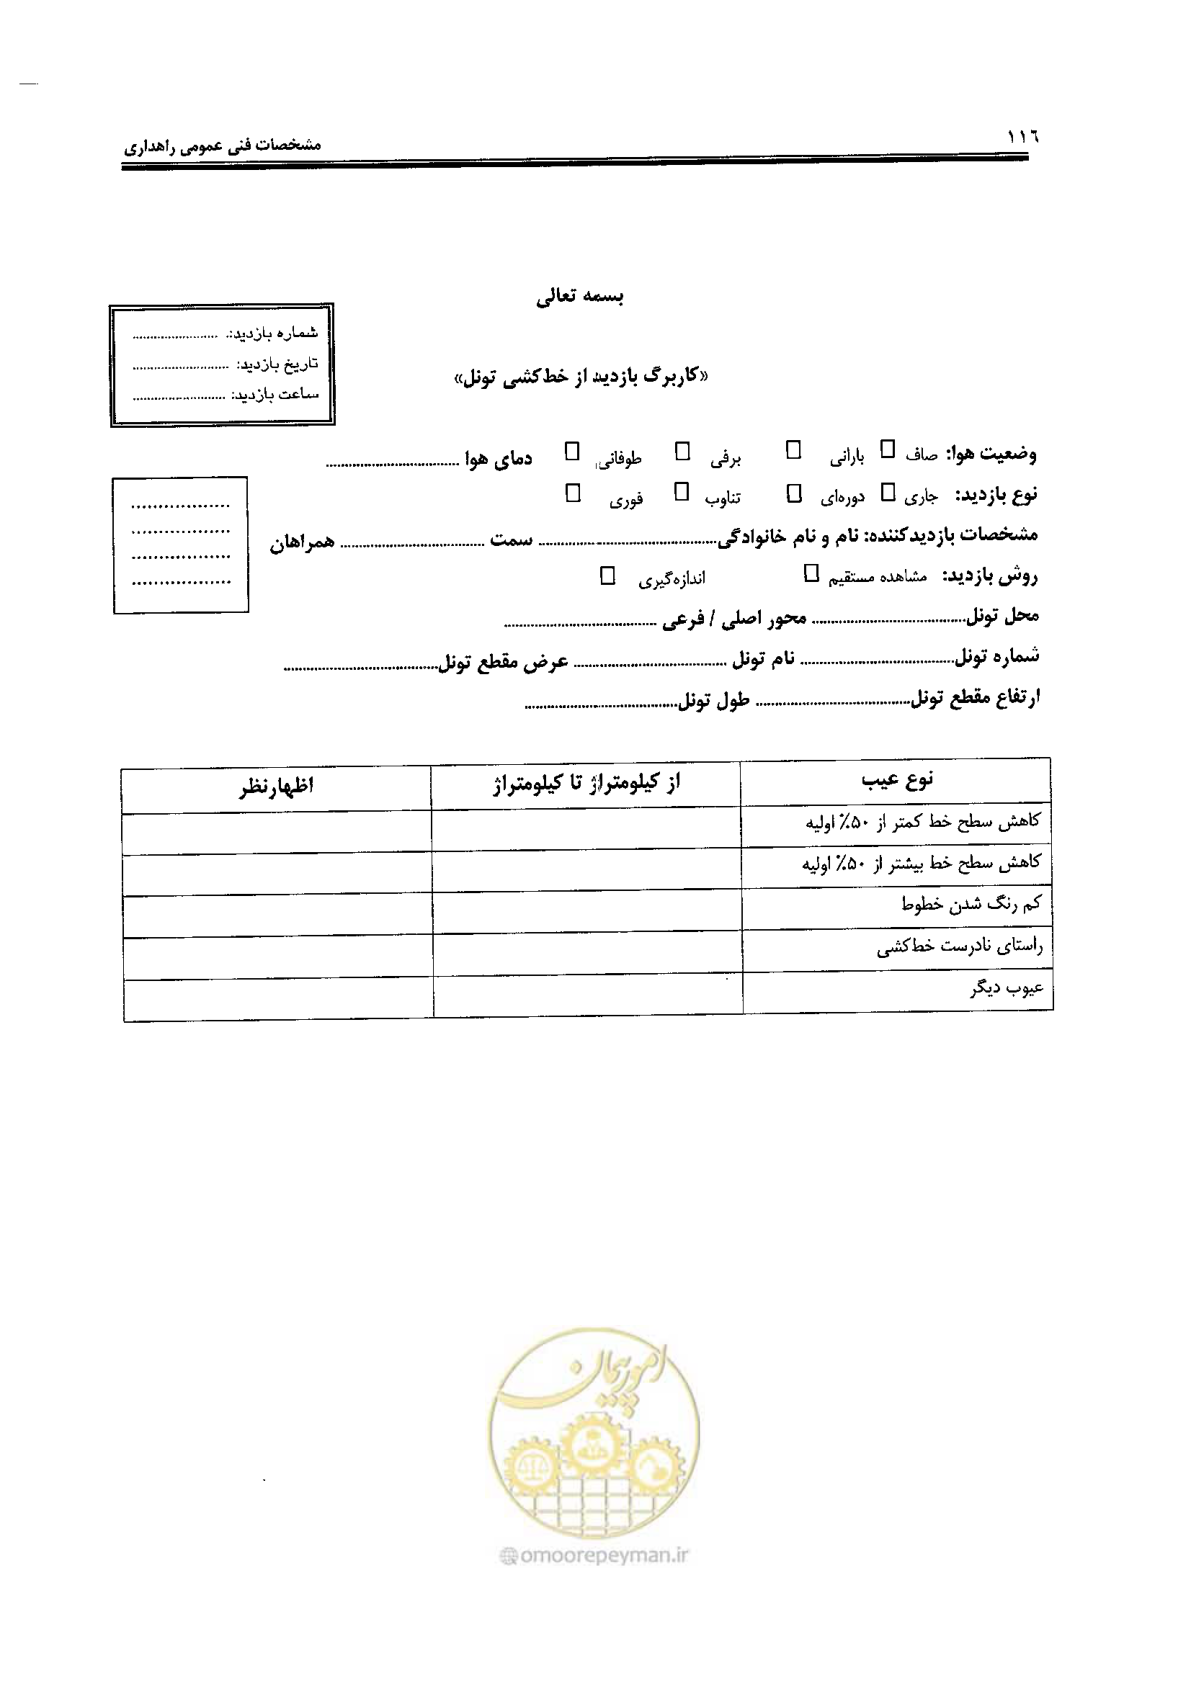 ۱۱۶
مشخصات فنی عمومی راهداری
بسمه تعالی
شماره بازدید: ........................
تاریخ بازدید: ........................
ساعت بازدید: ........................
«کاربرگ بازدید از خط‌کشی تونل»
وضعیت هوا: صاف □ بارانی □ برفی □ طوفانی □ دمای هوا ..................................
نوع بازدید: جاری □ دوره‌ای □ تناوب □ فوری □
مشخصات بازدیدکننده: نام و نام خانوادگی.............................................. سمت ..................................... همراهان
..................
..................
..................
..................
روش بازدید: مشاهده مستقیم □ اندازه‌گیری □
محل تونل....................................... محور اصلی / فرعی .......................................
شماره تونل....................................... نام تونل ....................................... عرض مقطع تونل.......................................
ارتفاع مقطع تونل....................................... طول تونل.......................................
نوع عیب از کیلومتراژ تا کیلومتراژ اظهارنظر
کاهش سطح خط کمتر از ۵۰٪ اولیه
کاهش سطح خط بیشتر از ۵۰٪ اولیه
کم رنگ شدن خطوط
راستای نادرست خط‌کشی
عیوب دیگر
امور پیمان
omoorepeyman.ir